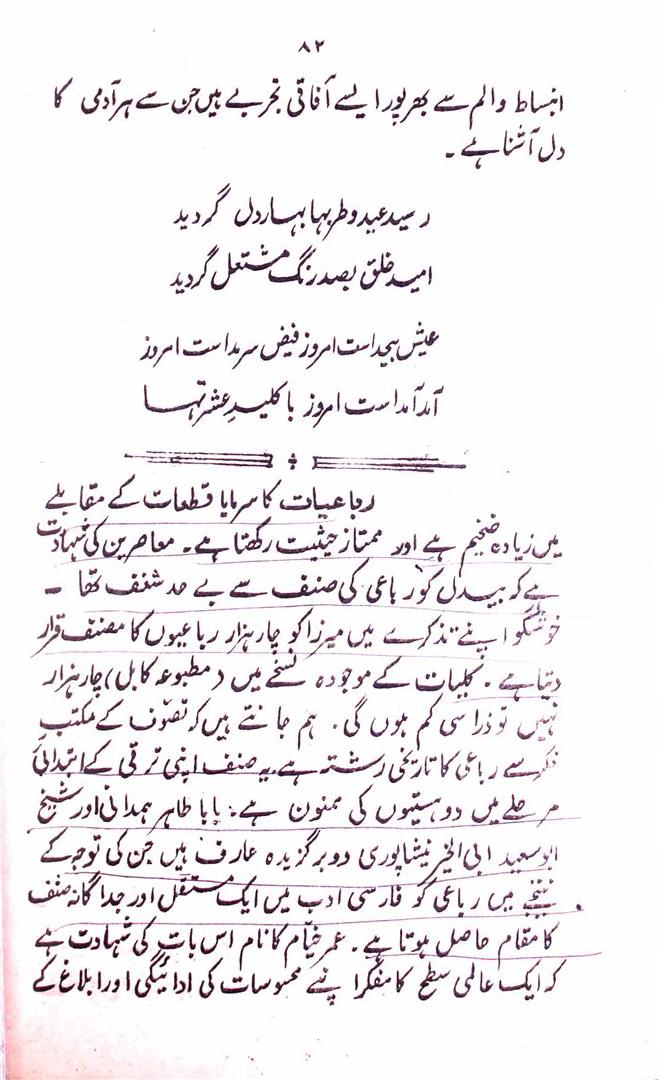 ۸۲
انبساط و الم سے بھرپور ایسے آفاقی تجربے ہیں جن سے ہر آدمی کا
دل آشنا ہے ۔
رسید عید و طربہا بہار دل گردید
امید خلق بصد رنگ مشتعل گردید
عیش بیحد است امروز فیض سرمد است امروز
آمد آمد است امروز با کلیدِ عشرتہا
رباعیات کا سرمایا قطعات کے مقابلے
میں زیادہ ضخیم ہے اور ممتاز حیثیت رکھتا ہے ۔ معاصرین کی شہادت
ہے کہ بیدل کو رباعی کی صنف سے بے حد شغف تھا ۔
خوشگو اپنے تذکرے میں میرزا کو چار ہزار رباعیوں کا مصنف قرار
دیتا ہے ۔ کلیات کے موجودہ نسخے میں (مطبوعہ کابل) چار ہزار
نہیں تو ذرا سی کم ہوں گی ۔ ہم جانتے ہیں کہ تصوّف کے مکتبِ
فکر سے رباعی کا تاریخی رشتہ ہے ۔ یہ صنف اپنی ترقی کے ابتدائی
مرحلے میں دو ہستیوں کی ممنون ہے : بابا طاہر ہمدانی اور شیخ
ابو سعید ابی الخیر نیشاپوری دو برگزیدہ عارف ہیں جن کی توجہ کے
نتیجے میں رباعی کو فارسی ادب میں ایک مستقل اور جداگانہ صنف
کا مقام حاصل ہوتا ہے ۔ عمر خیّام کا نام اس بات کی شہادت ہے
کہ ایک عالمی سطح کا مفکر اپنے محسوسات کی ادائیگی اور ابلاغ کے